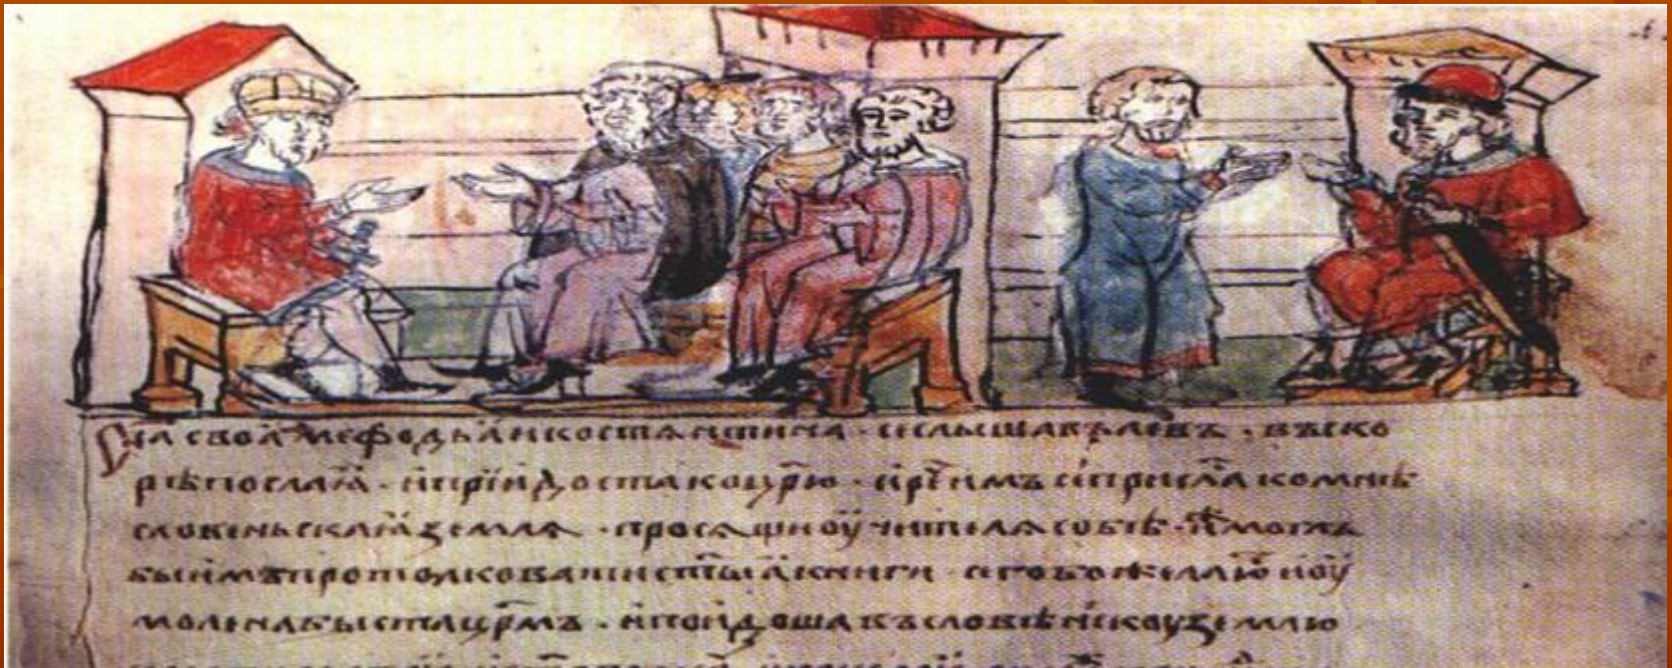 своа мефодьа и костянтина · и слышавъ левъ · въско
рѣ посла ꙗ · и прїидоста ко цр҃ю · и реⷱ҇ имъ се присла ко мнѣ
словеньскаа земля · просящи оучителя собѣ · моглъ
бы имъ протолковати ст҃ыа книги · сего бо желаю · и оу
молена быста цр҃мъ · и поидоша въ словѣнскоу землю